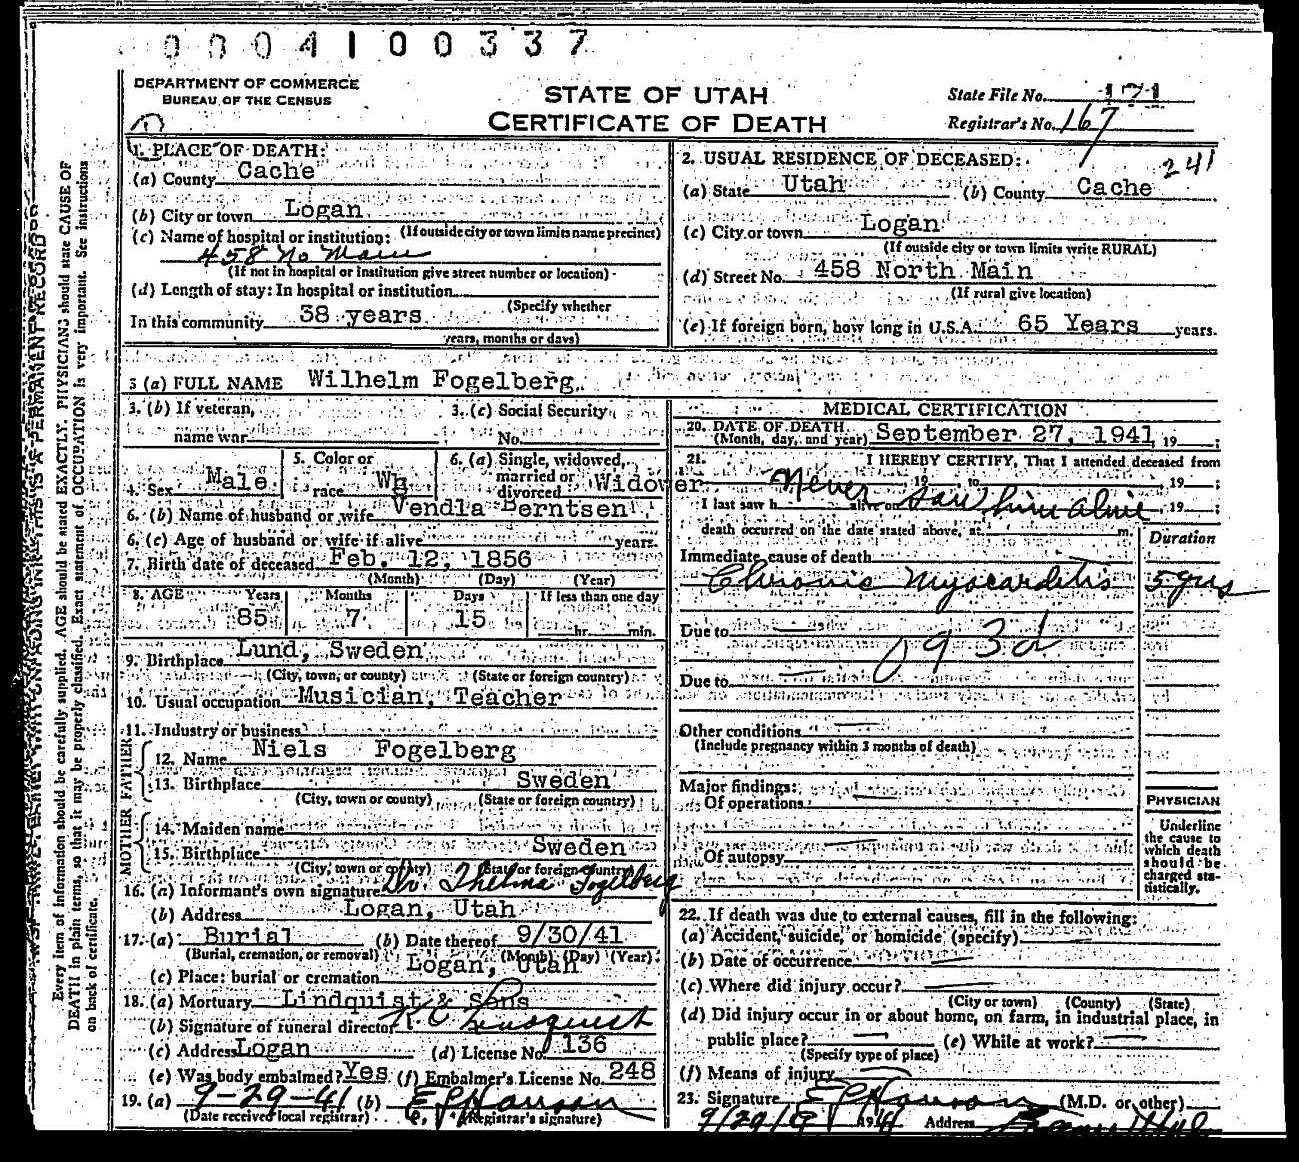 0004100337
DEPARTMENT OF COMMERCE
BUREAU OF THE CENSUS
STATE OF UTAH
CERTIFICATE OF DEATH
State File No. 171
Registrar's No. 167
241
1. PLACE OF DEATH:
(a) County Cache
(b) City or town Logan
(If outside city or town limits name precinct)
(c) Name of hospital or institution:
458 No Main
(If not in hospital or institution give street number or location)
(d) Length of stay: In hospital or institution
(Specify whether
In this community 38 years
years, months or days)
2. USUAL RESIDENCE OF DECEASED:
(a) State Utah (b) County Cache
(c) City or town Logan
(If outside city or town limits write RURAL)
(d) Street No. 458 North Main
(If rural give location)
(e) If foreign born, how long in U.S.A. 65 Years years.
3 (a) FULL NAME Wilhelm Fogelberg
3. (b) If veteran,
name war
3. (c) Social Security
No.
4. Sex Male
5. Color or
race Wh
6. (a) Single, widowed,
married or
divorced Widower
6. (b) Name of husband or wife Vendla Berntsen
6. (c) Age of husband or wife if alive years.
7. Birth date of deceased Feb. 12, 1856
(Month) (Day) (Year)
8. AGE Years Months Days If less than one day
85 7 15 hr. min.
9. Birthplace Lund, Sweden
(City, town, or county) (State or foreign country)
10. Usual occupation Musician, Teacher
11. Industry or business
FATHER
12. Name Niels Fogelberg
13. Birthplace Sweden
(City, town or county) (State or foreign country)
MOTHER
14. Maiden name
15. Birthplace Sweden
(City, town or county) (State or foreign country)
16. (a) Informant's own signature Dr. Thelma Fogelberg
(b) Address Logan, Utah
17. (a) Burial (b) Date thereof 9/30/41
(Burial, cremation, or removal) (Month) (Day) (Year)
(c) Place: burial or cremation Logan, Utah
18. (a) Mortuary Lindquist & Sons
(b) Signature of funeral director R C Lindquist
(c) Address Logan (d) License No. 136
(e) Was body embalmed? Yes (f) Embalmer's License No. 248
19. (a) 9-29-41 (b) E P Hanson
(Date received local registrar) (Registrar's signature)
MEDICAL CERTIFICATION
20. DATE OF DEATH
(Month, day, and year) September 27, 1941, 19 ;
21. I HEREBY CERTIFY, That I attended deceased from
, 19 to , 19 ;
Never saw him alive
I last saw h alive on , 19 ;
death occurred on the date stated above, at m.
Duration
Immediate cause of death
Chronic Myocarditis 5 yrs
Due to
093d
Due to
Other conditions
(Include pregnancy within 3 months of death)
Major findings:
Of operations
Of autopsy
PHYSICIAN
Underline
the cause to
which death
should be
charged sta-
tistically.
22. If death was due to external causes, fill in the following:
(a) Accident, suicide, or homicide (specify)
(b) Date of occurrence
(c) Where did injury occur?
(City or town) (County) (State)
(d) Did injury occur in or about home, on farm, in industrial place, in
public place? (e) While at work?
(Specify type of place)
(f) Means of injury
23. Signature E P Hanson (M.D. or other)
9/29/ 1941 Address
Every item of information should be carefully supplied. AGE should be stated EXACTLY. PHYSICIANS should state CAUSE OF
DEATH in plain terms, so that it may be properly classified. Exact statement of OCCUPATION is very important. See instructions
on back of certificate.